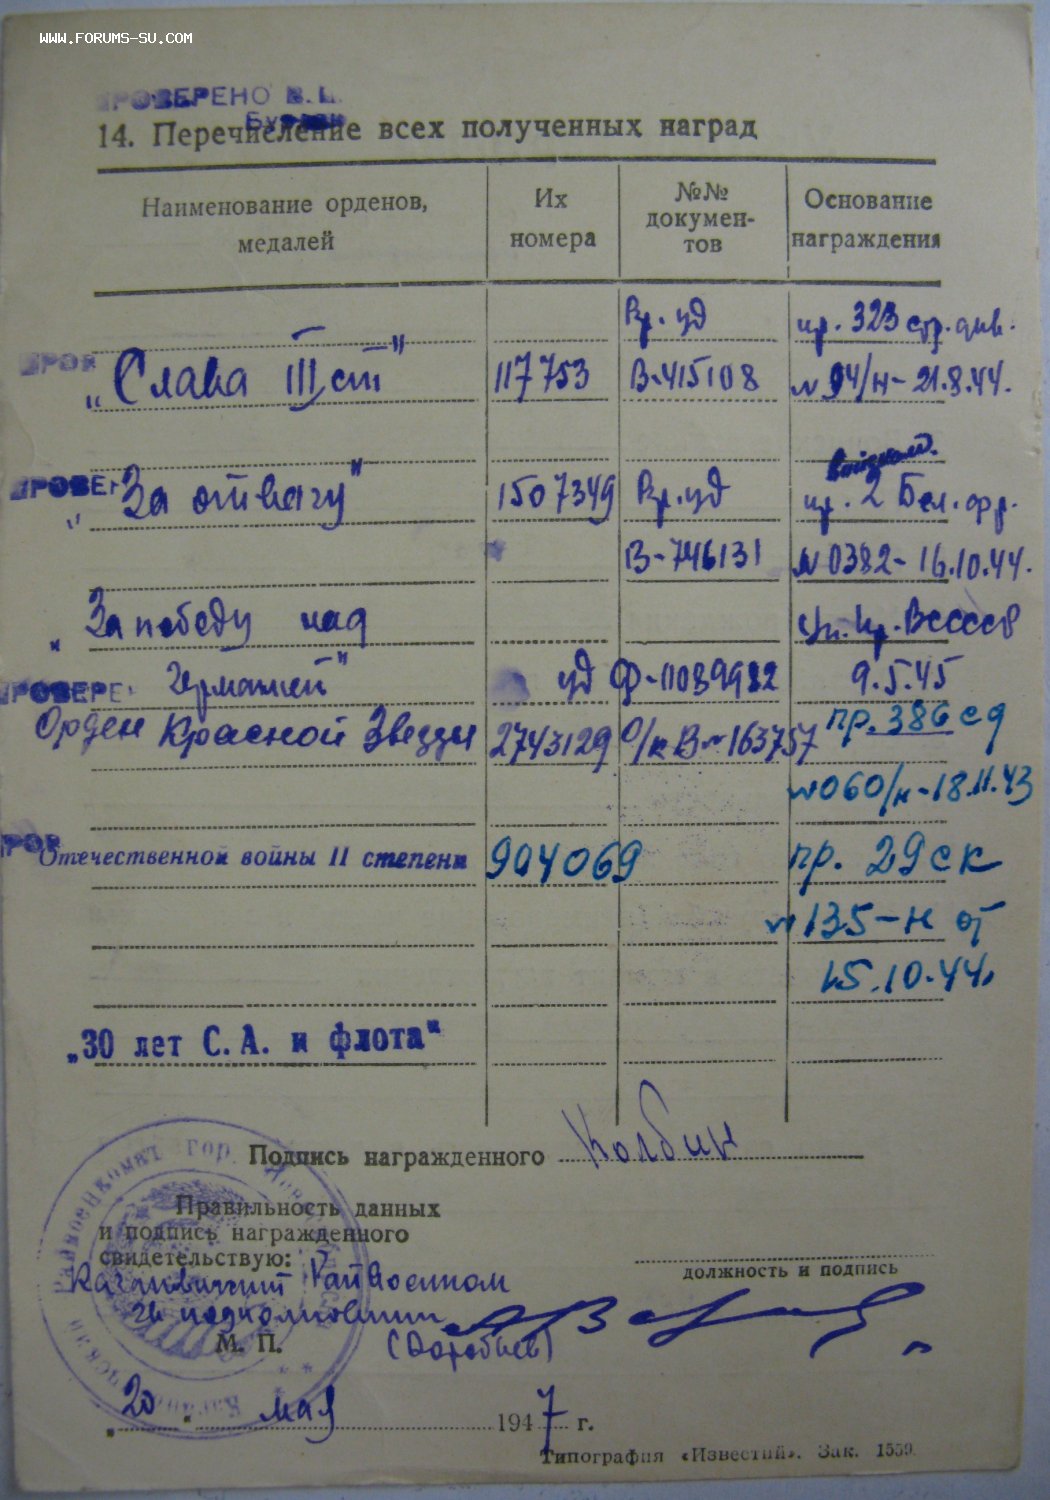 WWW.FORUMS-SU.COM
ПРОВЕРЕНО
14. Перечисление всех полученных наград
Наименование орденов, медалей
Их номера
№№ документов
Основание награждения
Вр. уд пр. 323 стр. див.
ПРОВ
„Слава III ст" 117753 В-415108 № 94/н - 21.8.44.
ПРОВЕР
„За отвагу" 1507349 Вр. уд пр. 2 Бел. фр.
В-746131 № 0382 - 16.10.44.
„За победу над
ПРОВЕРЕ Германией" уд Ф-1109982 9.5.45
Орден Красной Звезды 2743129 О/к В № 163757 пр. 386 сд
№ 060/н - 18.11.43
ПРОВ
Отечественной войны II степени 904069 пр. 29 ск
№ 135-н от
15.10.44.
„30 лет С. А. и флота"
Подпись награжденного Колбин
Правильность данных
и подпись награжденного
свидетельствую:
должность и подпись
Кагановичский Райвоенком
подполковник
М. П. (Воробьев)
„20" мая 1947 г.
Типография «Известий». Зак. 1559.